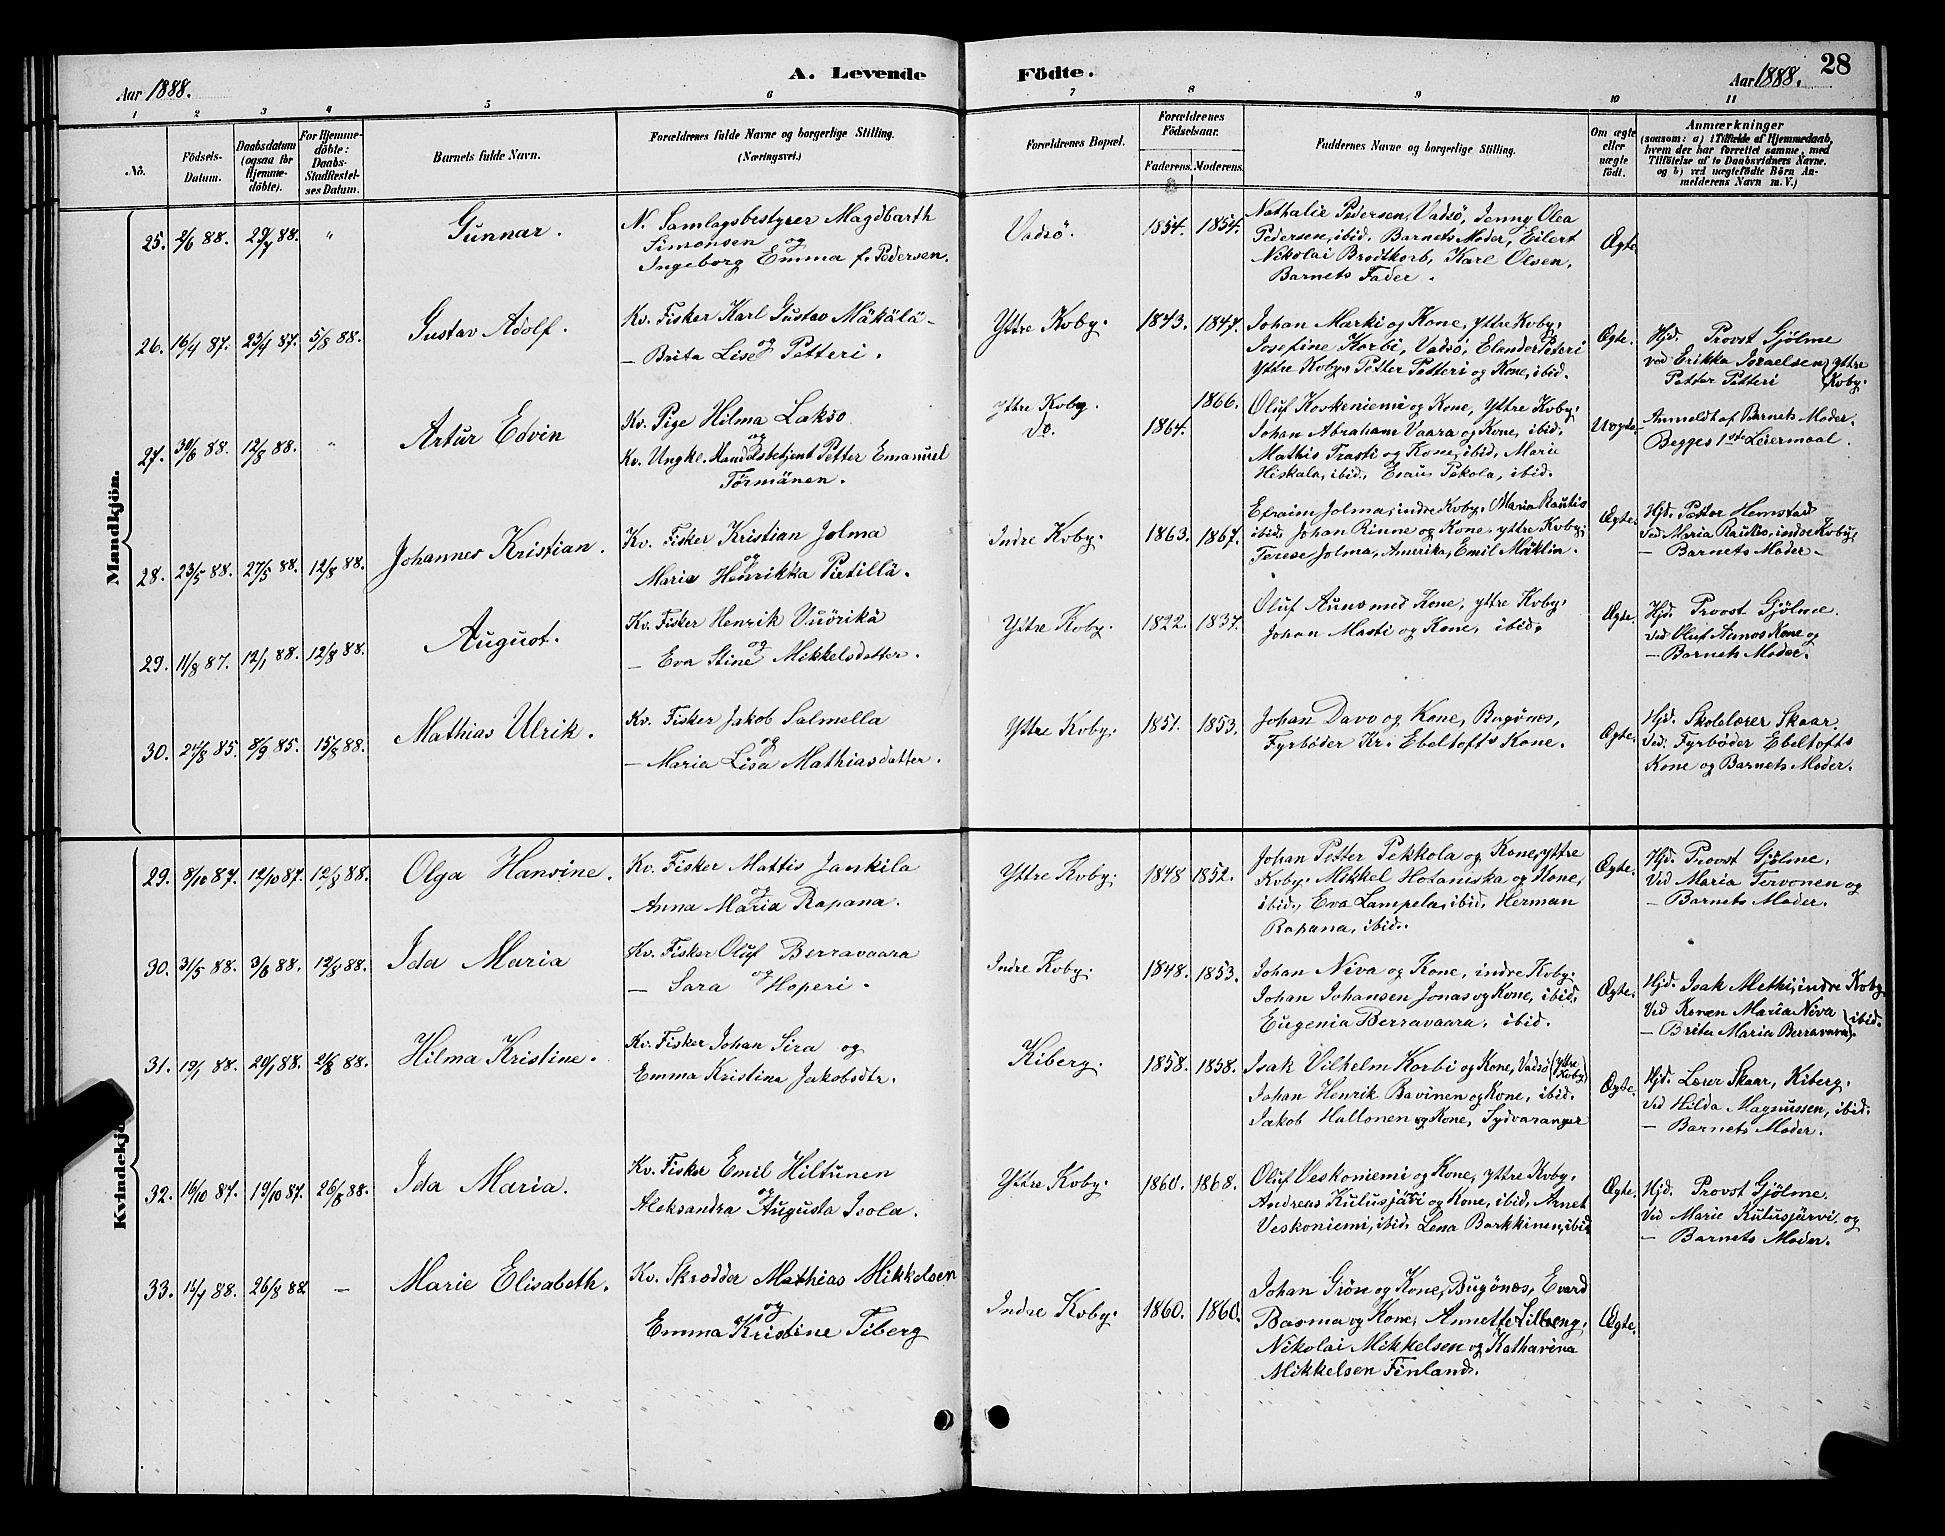 28
Aar 1888.
A. Levende Födte.
Aar 1888.
1 2 3 4 5 6 7 8 9 10 11
No.
Födsels-
Datum.
Daabsdatum
(ogsaa for
Hjemme-
döbte).
For Hjemme-
döbte:
Daabs-
Stadfæstel-
ses Datum.
Barnets fulde Navn.
Forældrenes fulde Navne og borgerlige Stilling.
(Næringsvei.)
Forældrenes Bopæl.
Forældrenes
Födselsaar.
Faderens. Moderens.
Faddernes Navne og borgerlige Stilling.
Om ægte
eller
uægte
födt.
Anmærkninger
(saasom: a) i Tilfælde af Hjemmedaab,
hvem der har forrettet samme, med
Tilföielse af to Daabsvidners Navne.
og b) ved uægtefödte Börn An-
melderens Navn m. V.)
Mandkjön.
25. 2/6 88. 29/7 88. "
Gunnar.
N. Samlagsbestyrer Magdbarth
Simonsen og
Ingeborg Emma f. Pedersen.
Vadsö.
1854. 1854.
Nathalie Pedersen, Vadsö, Jenny Olea
Pedersen, ibid. Barnets Moder, Eilert
Nikolai Brodtkorb, Karl Olsen,
Barnets Fader.
Ægte
26. 16/4 87. 23/4 87. 5/8 88.
Gustav Adolf.
Kv. Fisker Karl Gustav Mäkälä
og
— Brita Lise Petteri.
Yttre Kiby.
1843. 1847.
Johan Marki og Kone, Yttre Kiby,
Josefine Korbi, Vadsö, Elander Peteri
Yttre Kiby, Petter Petteri og Kone, ibid.
Ægte.
Hjd. Provst Gjölme
ved Erikka Israelsen (Yttre
Petter Petteri (Kiby.
27. 30/6 88. 12/8 88. "
Artur Edvin
Kv. Pige Hilma Lakso
og
Kv. Ungk. Handelsbetjent Petter Emanuel
Törmänen.
Yttre Kiby.
Do.
1866.
1864.
Oluf Kovkeniemi og Kone, Yttre Kiby,
Johan Abraham Vaara og Kone, ibid,
Mathis Trasti og Kone, ibid, Marie
Hiskala, ibid., Esaus Pekola, ibid.
Uægte.
Anmeldt af Barnets Moder.
Begges 1ste Leiermaal.
28. 23/5 88. 27/5 88. 12/8 88.
Johannes Kristian.
Kv. Fisker Kristian Jolma
og
Maria Henrikka Pietillä.
Indre Kiby.
1863. 1867.
Efraim Jolma, indre Kiby, Maria Rautio
ibid, Johan Rinne og Kone, yttre Kiby;
Terese Jolma, Amerika, Emil Mäklin.
Ægte.
Hjd. Pastor Hemstad
Ved Maria Rautio, indre Kiby,
— Barnets Moder —
29. 11/8 87. 12/1 88. 12/8 88.
August.
Kv. Fisker Henrik Vuörikä
og
— Eva Stine Mikkelsdatter.
Yttre Kiby.
1822. 1837.
Oluf Aunos med Kone, yttre Kiby,
Johan Masti og Kone, ibid.
Ægte.
Hjd. Provst Gjölme.
Ved Oluf Aunos Kone og
— Barnets Moder.
30. 24/8 85. 8/9 85. 15/8 88.
Mathias Ulrik.
Kv. Fisker Jakob Salmella
og
— Maria Lisa Mathiasdatter.
Yttre Kiby.
1851. 1853.
Johan Davo og Kone, Bugönes,
Fyrböder Kr. Ebeltofts Kone.
Ægte.
Hjd. Skolelærer Skaar
Ved: Fyrböder Ebeltofts
Kone og Barnets Moder.
Kvindekjö
29. 8/10 87. 12/10 87. 12/8 88.
Olga Hansine.
Kv. Fisker Mattis Jankila
og
Anna Maria Rapana.
Yttre Kiby.
1848 1852.
Johan Petter Pekkola og Kone, yttre
Kiby, Mikkel Hotaniska og Kone,
ibid, Eva Lampela, ibid, Herman
Rapana, ibid.
Ægte.
Hjd. Provst Gjölme.
Ved Maria Tervonen og
— Barnets Moder.
30. 31/5 88. 3/6 88. 12/8 88.
Ida Maria
Kv. Fisker Oluf Berravaara
og
— Sara Hoperi.
Indre Kiby.
1848. 1853.
Johan Niva og Kone, indre Kiby,
Johan Johansen Jonas og Kone, ibid.
Eugenia Berravaara, ibid.
Ægte.
Hjd. Isak Methi, indre Kiby
Ved Kæven Maria Niva ) ibid.
— Brita Maria Berravara )
31. 19/1 88. 20/1 88. 2/8 88.
Hilma Kristine.
Kv. Fisker Johan Sira og
Emma Kristina Jakobsdtr.
Kiberg.
1858. 1858.
Isak Vilhelm Korbi og Kone, Vadsö (Yttre Kiby)
Johan Henrik Bavinen og Kone, ibid.
Jakob Hallonen og Kone, Sydvaranger
Ægte.
Hjd. Lærer Skaar, Kiberg.
Ved Hilda Magnussen, ibid.
— Barnets Moder.
32. 16/10 87. 19/10 87. 26/8 88.
Ida Maria.
Kv. Fisker Emil Hiltunen
og
Aleksandra Augusta Isola.
Yttre Kiby.
1860. 1868.
Oluf Veskoniemi og Kone, Yttre Kiby.
Andreas Kulusjärvi og Kone, ibid, Arnet
Veskoniemi, ibid, Lena Barkkinen, ibid
Ægte.
Hjd. Provst Gjölme.
Ved Marie Kulusjärvi og
— Barnets Moder.
33. 15/7 88. 26/8 88. —
Marie Elisabeth.
Kv. Skrædder Mathias Mikkelsen
og
Emma Kristine Tiberg
Indre Kiby.
1860. 1860.
Johan Grön og Kone, Bugönes, Evard
Basma og Kone, Annette Lilleeng,
Nikolai Mikkelsen og Katharina
Mikkelsen Finland.
Ægte.